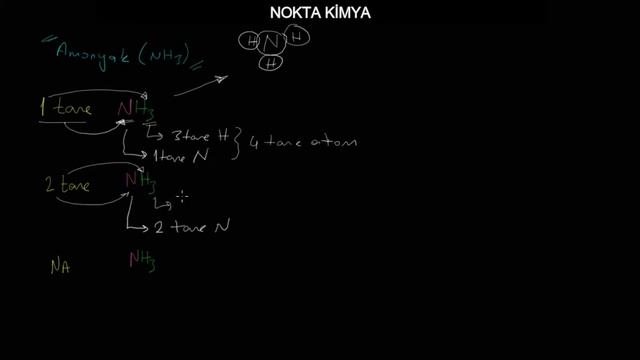 NOKTA KİMYA
"Amonyak (NH3)"
H N H
H
1 tane NH3
3 tane H
1 tane N } 4 tane atom
2 tane NH3
2 tane N
NA NH3